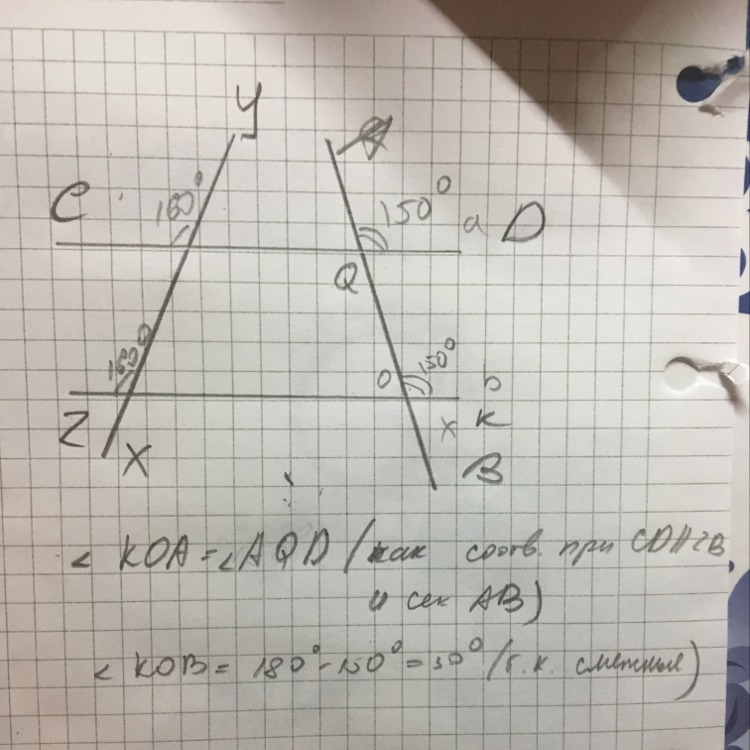 У A
C 160° 150° a D
Q
160° O 150° b
Z X x K
B
∠ KOA = ∠AQD (как соотв. при CD//ZB
и сек AB)
∠ KOB = 180°-150°=30° (т.к. смежные)